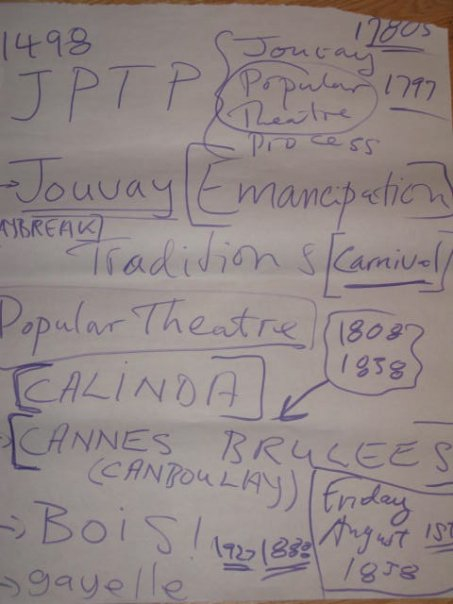 1498
1780s
JPTP
Jouvay
Popular
Theatre
Process
1797
→Jouvay [Emancipation]
AYBREAK]
Traditions [Carnival]
Popular Theatre
1808?
1838
[CALINDA]
[CANNES BRULEES
(CANBOULAY)
→Bois!
Friday
August 1st
1838
→gayelle